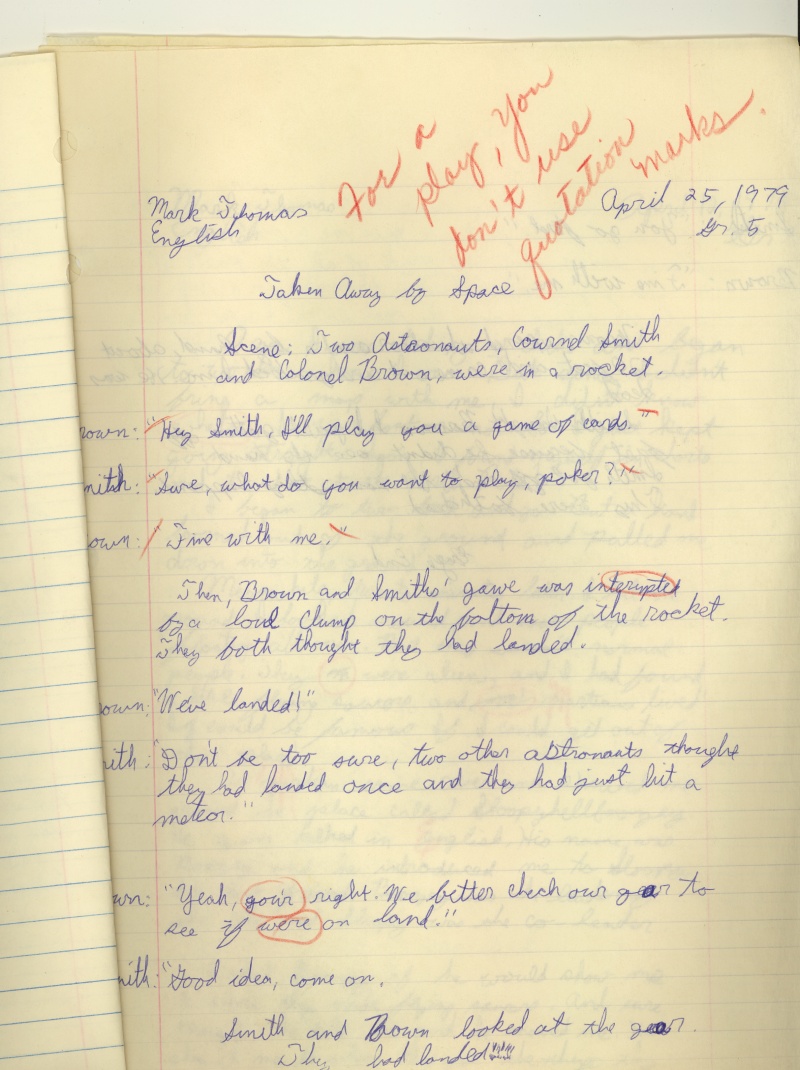 For a
play, you
don't use
quotation marks.
Mark Thomas
English
April 25, 1979
Gr. 5
Taken Away by Space
Scene: Two Astaonauts, Cournd Smith
and Colonel Brown, were in a rocket.
rown: "Hey Smith, I'll play you a game of cards."
mith: "Sure, what do you want to play, poker?"
own: "Fine with me."
Then, Brown and Smiths' game was interupted
by a loud clump on the bottom of the rocket.
They both thought they had landed.
own: "We've landed!"
ith: "Don't be too sure, two other astronauts thought
they had landed once and they had just hit a
meteor."
wn: "Yeah, your right. We better check our gear to
see if were on land."
mith: "Good idea, come on.
Smith and Brown looked at the gear.
They had landed!!!!